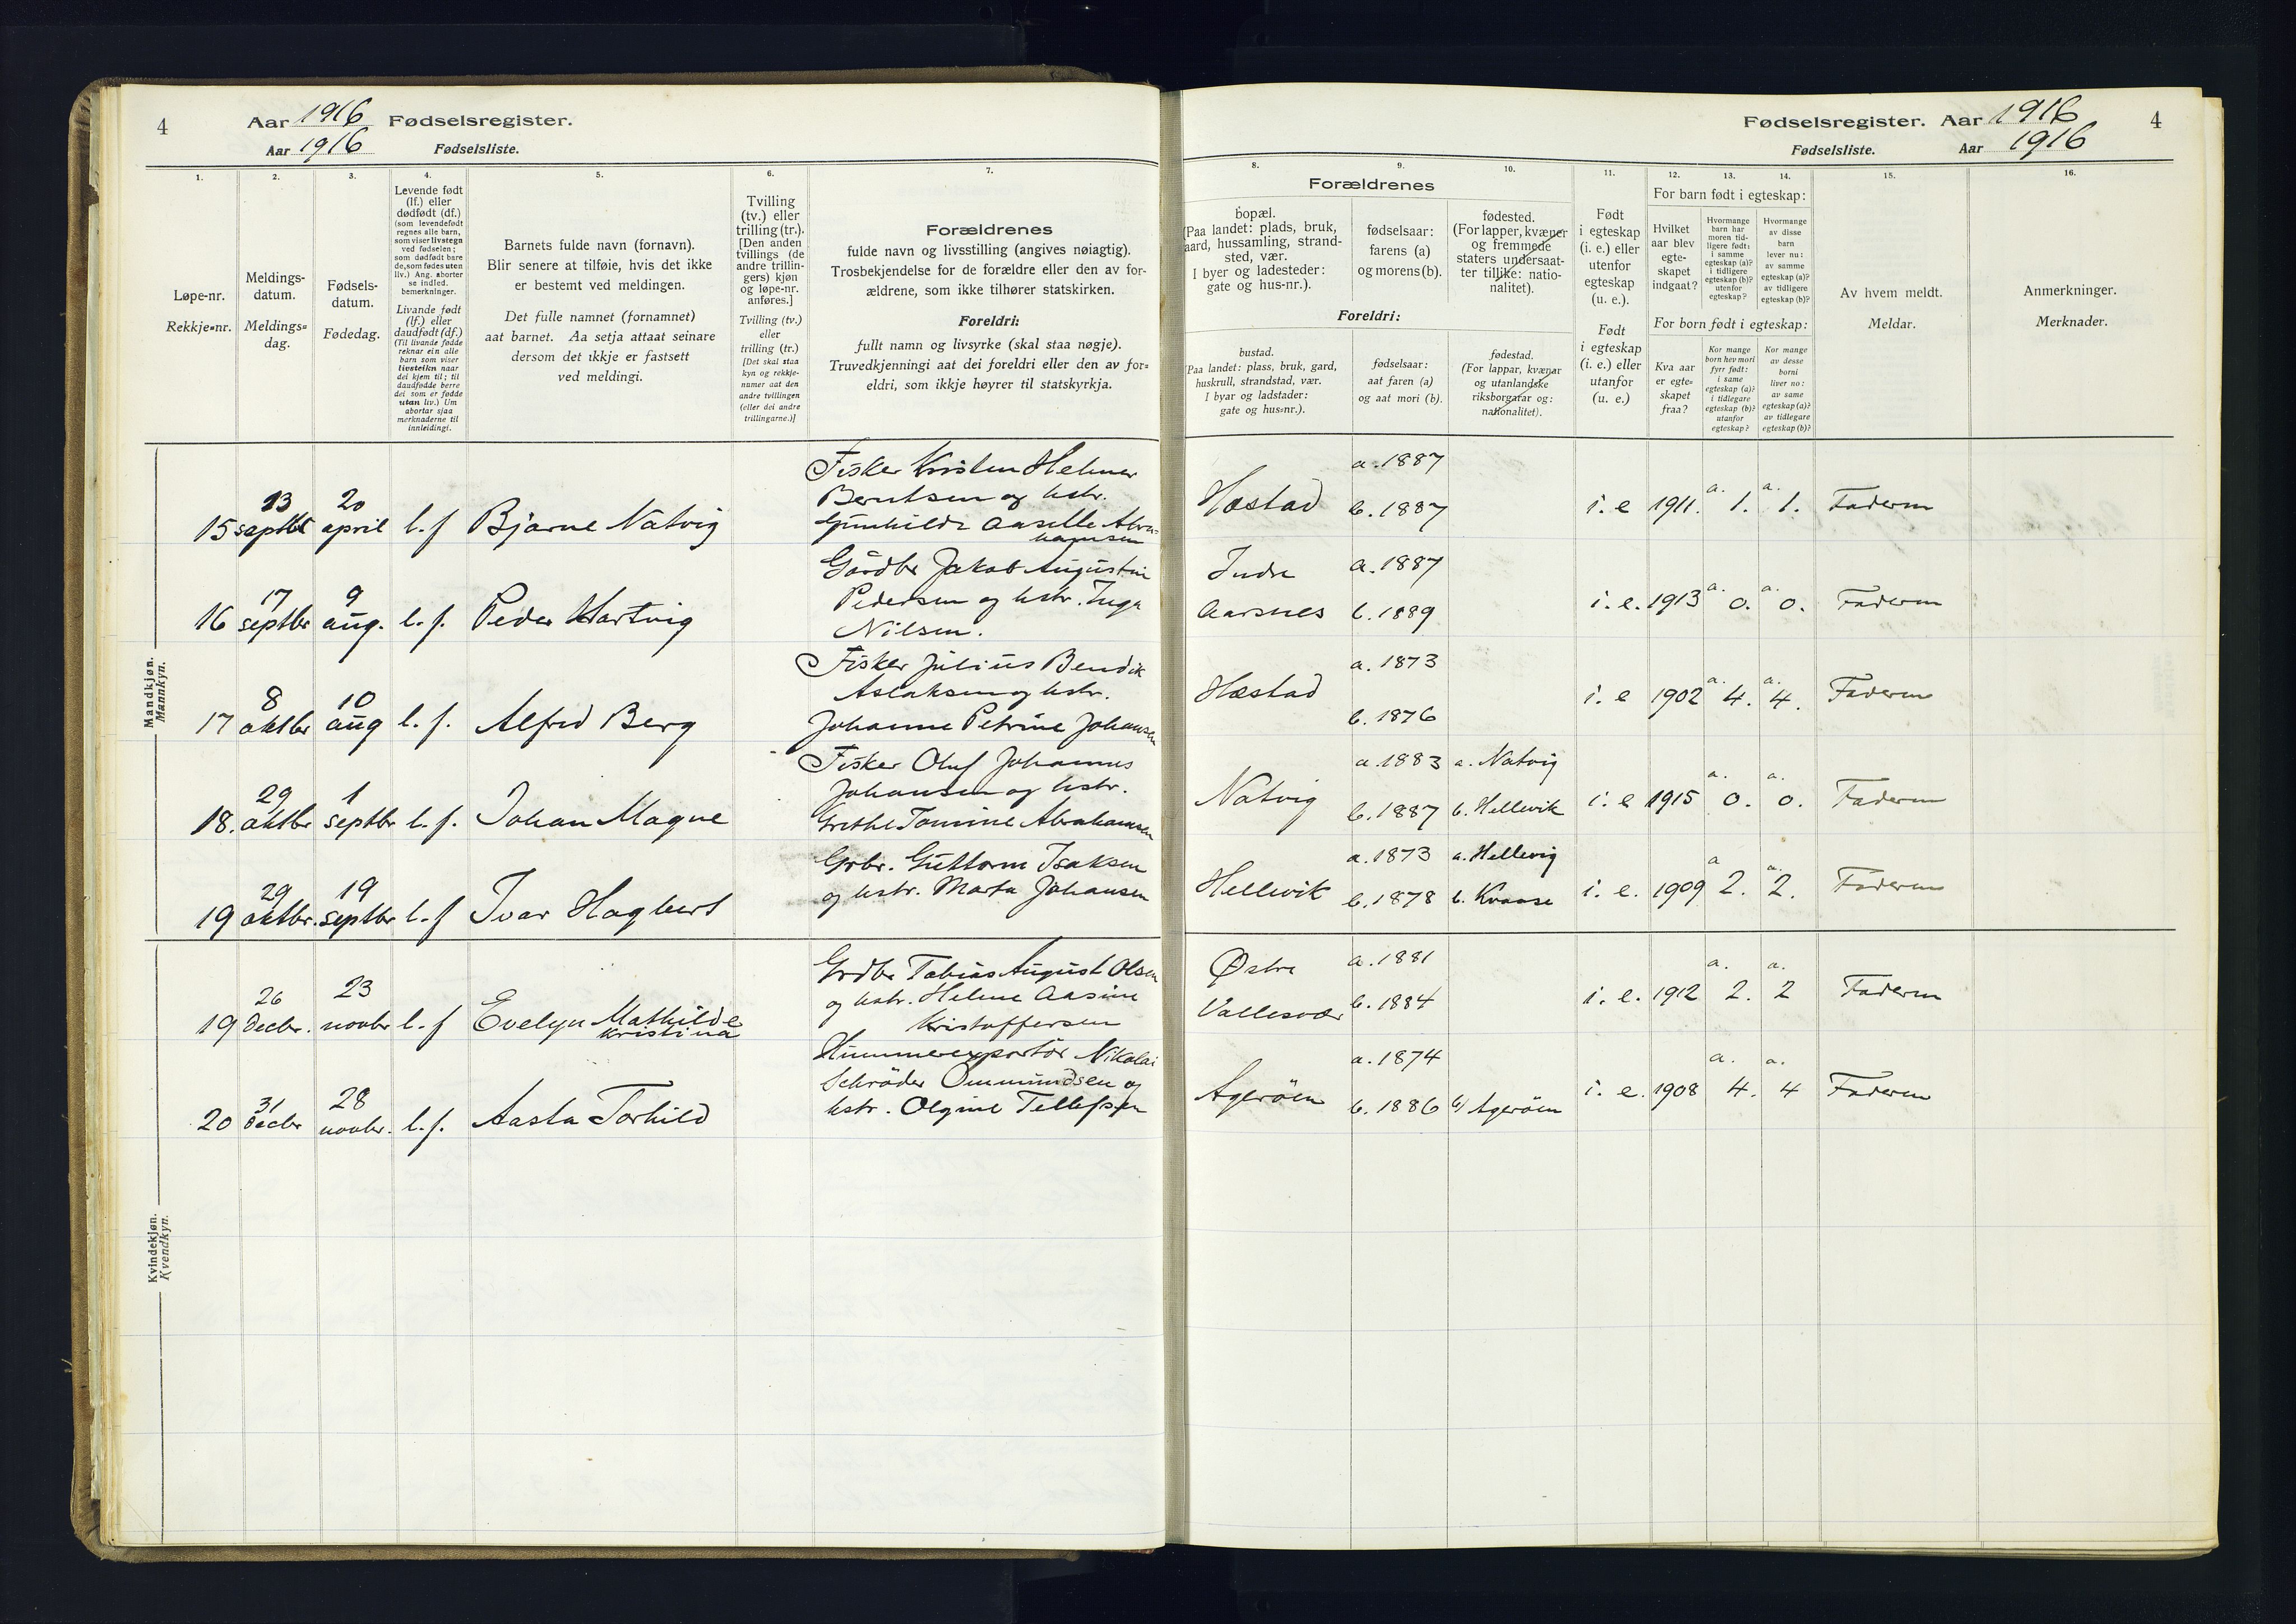 4
Aar 1916 Fødselsregister.
Aar 1916 Fødselsliste.
1.
2.
3.
4.
5.
6.
7.
Løpe-nr.
Rekkje-nr.
Meldings-
datum.
Meldings-
dag.
Fødsels-
datum.
Fødedag.
Levende født
(lf.) eller
dødfødt (df.)
(som levendefødt
regnes alle barn,
som viser livstegn
ved fødselen;
som dødfødt bare
de, som fødes uten
liv.) Ang. aborter
se indled.
bemerkninger.
Livande født
(lf.) eller
daudfødt (df.)
(Til livande fødde
reknar ein alle
barn som viser
livsteikn naar
dei kjem til; til
daudfødde berre
dei som er fødde
utan liv.) Um
abortar sjaa
merknaderne til
innleidingi.
Barnets fulde navn (fornavn).
Blir senere at tilføie, hvis det ikke
er bestemt ved meldingen.
Det fulle namnet (fornamnet)
aat barnet. Aa setja attaat seinare
dersom det ikkje er fastsett
ved meldingi.
Tvilling
(tv.) eller
trilling (tr.).
[Den anden
tvillings (de
andre trillin-
gers) kjøn
og løpe-nr.
anføres.]
Tvilling (tv.)
eller
trilling (tr.)
[Det skal staa
kyn og rekkje-
numer aat den
andre tvillingen
(eller dei andre
trillingarne.)]
Forældrenes
fulde navn og livsstilling (angives nøiagtig).
Trosbekjendelse for de forældre eller den av for-
ældrene, som ikke tilhører statskirken.
Foreldri:
fullt namn og livsyrke (skal staa nøgje).
Truvedkjenningi aat dei foreldri eller den av for-
eldri, som ikkje høyrer til statskyrkja.
Mandkjøn.
Mannkyn.
15 13 septbr 20 april l. f Bjarne Natvig
Fisker Kristen Helmer
Berntsen og hstr.
Gunhilde Aaselle Abra-
hamsen
16 17 septbr 9 aug. l. f. Peder Hartvig
Gårdbr Jakob Augustin
Pedersen og hstr. Inga
Nilsen.
17 8 oktbr 10 aug l. f. Alfred Berg
Fisker Julius Bendik
Aslaksen og hstr.
Johanne Petrine Johansen
18. 29 oktbr 1 septbr l. f. Johan Magne
Fisker Oluf Johannes
Johansen og hstr.
Grethe Tomine Abrahamsen
19 29 oktbr. 19 septbr l. f Ivar Hagbert
Grbr. Guttorm Isaksen
og hstr. Marta Johansen
Kvindekjøn.
Kvendkyn.
19 26 decbr. 23 novbr l. f Evelyn Mathilde
Kristina
Grdbr Tobias August Olsen
og hstr. Helene Aasine
Kristoffersen
20 31 decbr 28 novbr. l. f. Aasta Torhild
Hummerexportør Nikolai
Schröder Ommundsen og
hstr. Olgine Tellefsen
Fødselsregister. Aar 1916
4
Fødselsliste. Aar 1916
8.
9.
10.
11.
12.
13.
14.
15.
16.
Forældrenes
bopæl.
(Paa landet: plads, bruk,
gaard, hussamling, strand-
sted, vær.
I byer og ladesteder:
gate og hus-nr.).
fødselsaar:
farens (a)
og morens (b).
fødested.
(For lapper, kvæner
og fremmede
staters undersaat-
ter tillike: natio-
nalitet).
Foreldri:
bustad.
(Paa landet: plass, bruk, gard,
huskrull, strandstad, vær.
I byar og ladstader:
gate og hus-nr.).
fødselsaar:
aat faren (a)
og aat mori (b).
fødestad.
(For lappar, kvænar
og utanlandske
riksborgarar og:
nationalitet).
Født
i egteskap
(i. e.) eller
utenfor
egteskap
(u. e.).
Født
i egteskap
(i. e.) eller
utanfor
(u. e.)
For barn født i egteskap:
Hvilket
aar blev
egte-
skapet
indgaat?
Hvormange
barn har
moren tid-
ligere født:
i samme
egteskap (a)?
i tidligere
egteskap (b)?
utenfor
egteskap?
Hvormange
av disse
barn
lever nu:
av samme
egteskap (a)?
av tidligere
egteskap (b)?
For born født i egteskap:
Kva aar
er egte-
skapet
fraa?
Kor mange
born hev mori
fyrr født:
i same
egteskap (a)?
i tidlegare
egteskap (b)?
utanfor
egteskap?
Kor mange
av desse
borni
liver no:
av same
egteskap (a)?
av tidlegare
egteskap (b)?
Av hvem meldt.
Meldar.
Anmerkninger.
Merknader.
Hæstad a. 1887 b. 1887 i. e 1911. a. 1. a. 1. Faderen
Indre Aarsnes a. 1887 b. 1889 i. e. 1913 a. 0. a. 0. Faderen
Hæstad a. 1873 b. 1876 i. e 1902 a. 4. a. 4. Faderen
Natvig a. 1883 b. 1887 a. Natvig b. Hellevik i. e 1915 a. 0. a. 0. Faderen
Hellevik a. 1873 b. 1878 a. Hellevig b. Kvaase i. e. 1909 a 2. a. 2. Faderen
Østre Vallesvær a. 1881 b. 1884 i. e. 1912 a. 2. a. 2 Faderen
Agerøen a. 1874 b. 1886 b) Agerøen i. e. 1908 a. 4. a. 4 Faderen